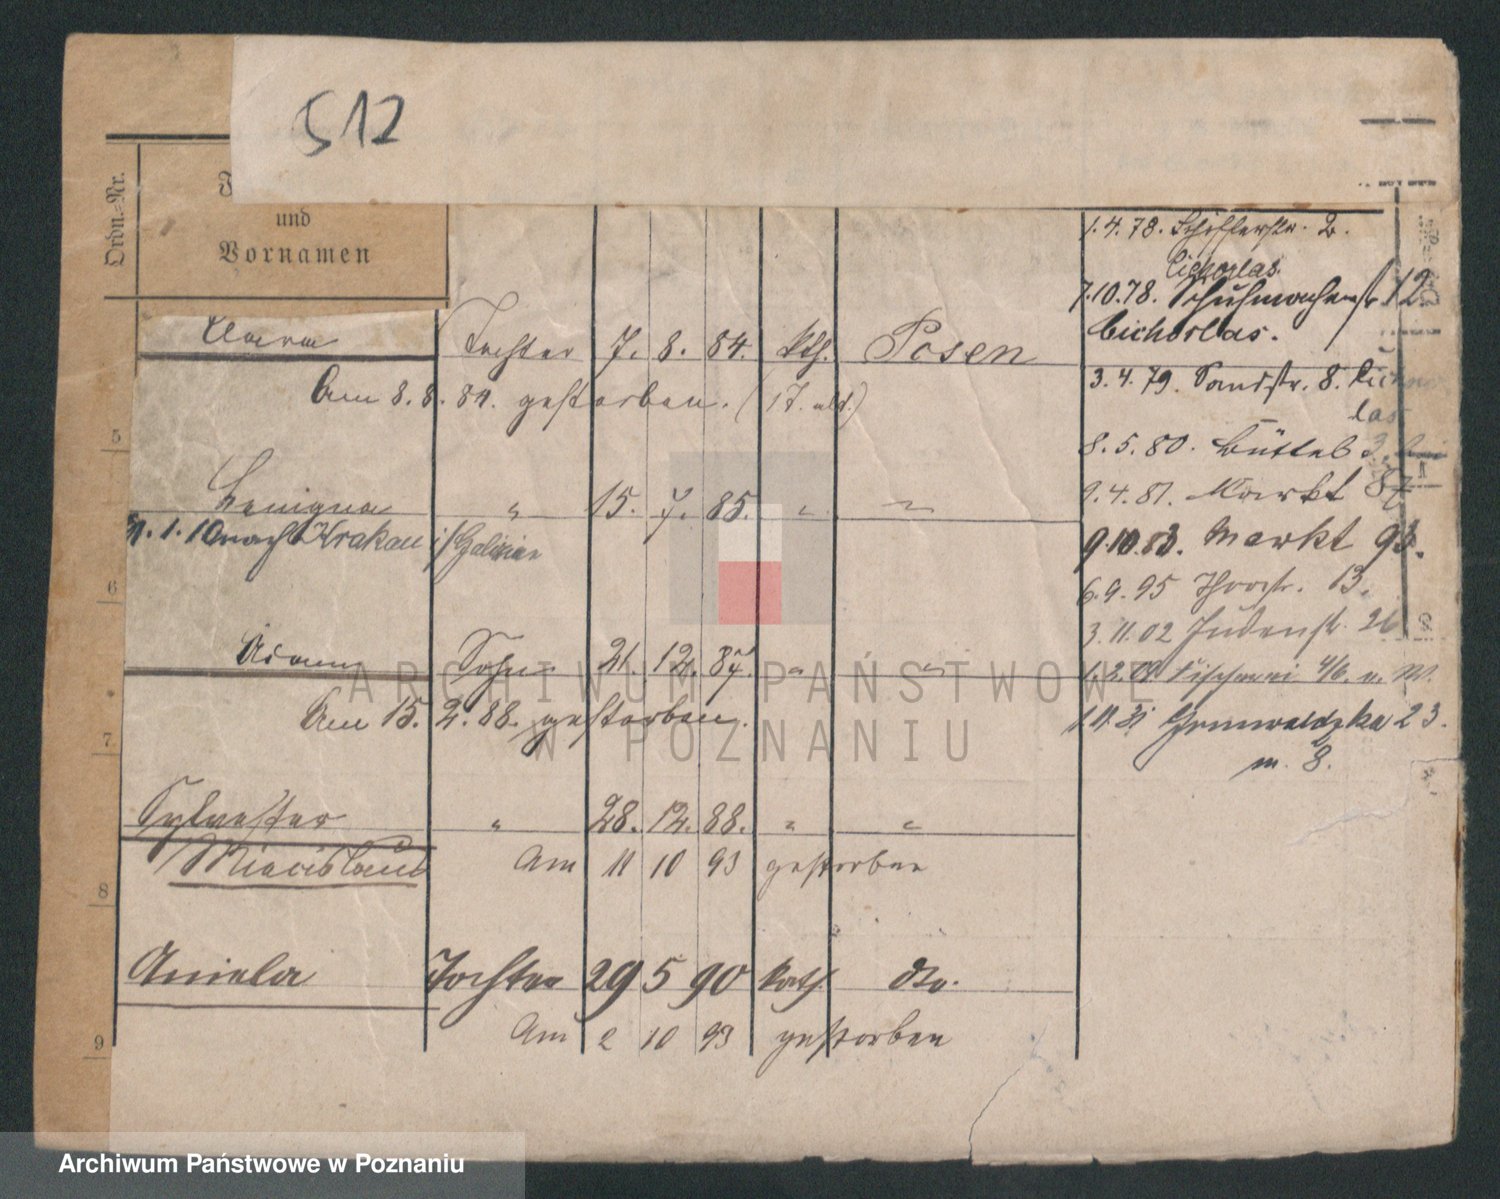 512
Ordn.-Nr.
und
Vornamen
Tochter 7. 8. 84. kth. Posen
Am 8. 8. 84. gestorben. (1 T. alt.)
5
Benigna " 15. 7. 85. " "
1.10 nach Krakau i/Galizien
6
Adam Sohn 21. 12. 87. " "
Am 15. 2. 88. gestorben.
7
Sylvester " 28. 12. 88. " "
Miecislaus Am 11 10 93 gestorben
8
Aniela Tochter 29 5 90 kath. dto.
Am 2 10 93 gestorben
9
1.4.78. Schifferstr. 2.
Cichorlas.
7.10.78. Schuhmacherstr 12
Cichorlas.
3.4.79. Sandstr. 8.
las
8.5.80. Büttel 3.
9.4.81. Markt 87
9.10.83. Markt 93.
6.9.95 Thorstr. 13.
3.11.02 Judenstr. 26
1.2.09 Fischerei 46. n. W.
Grunwaldzka 23.
m. 8.
ARCHIWUM PAŃSTWOWE
W POZNANIU
Archiwum Państwowe w Poznaniu